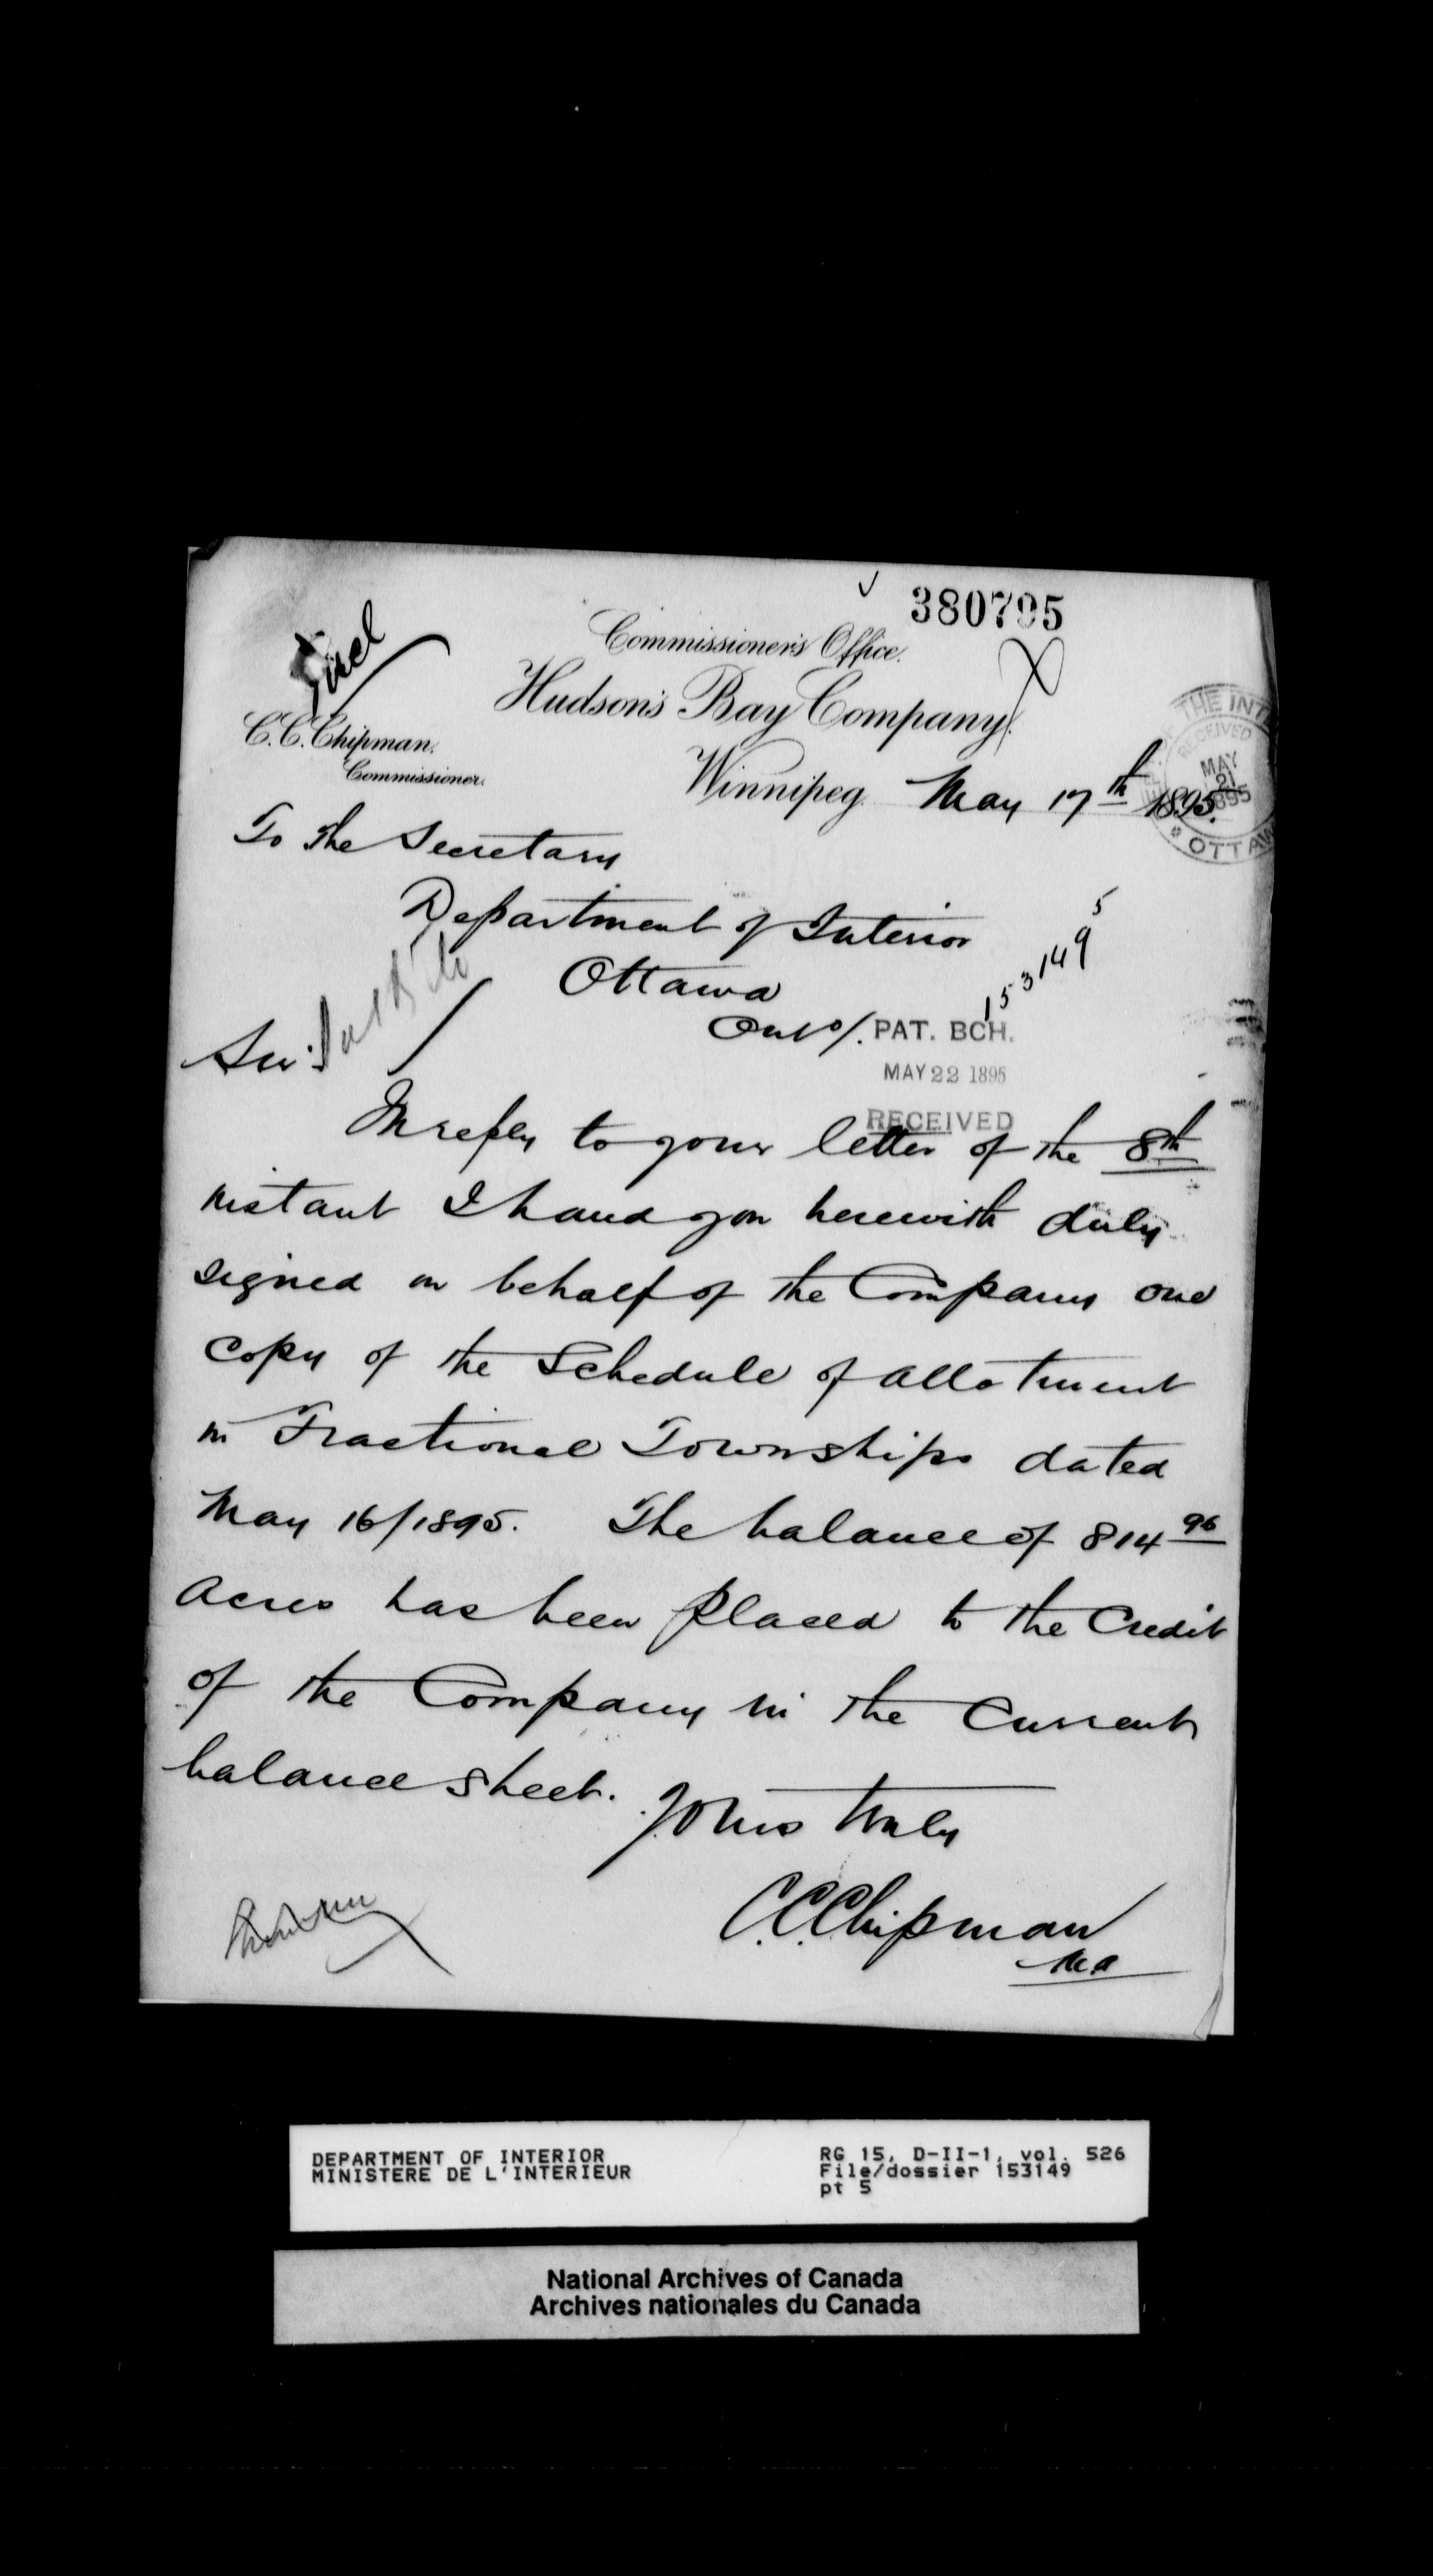 380795
Commissioner's Office.
Hudson's Bay Company.
C.C. Chipman.
Commissioner.
Winnipeg. May 17th 1895.
THE INTE
RECEIVED
MAY
21
1895
OTTAW
To The Secretary
Department of Interior
Ottawa
Onto/.
153149
5
PAT. BCH.
MAY 22 1895
RECEIVED
Sir:
In reply to your letter of the 8th
instant I hand you herewith duly
signed on behalf of the Company one
copy of the Schedule of allotment
in Fractional Townships dated
May 16/1895. The balance of 814 96
acres has been placed to the Credit
of the Company in the Current
balance sheet.
Yours truly
C.C. Chipman
DEPARTMENT OF INTERIOR
MINISTERE DE L'INTERIEUR
RG 15, D-II-1, vol. 526
File/dossier 153149
pt 5
National Archives of Canada
Archives nationales du Canada